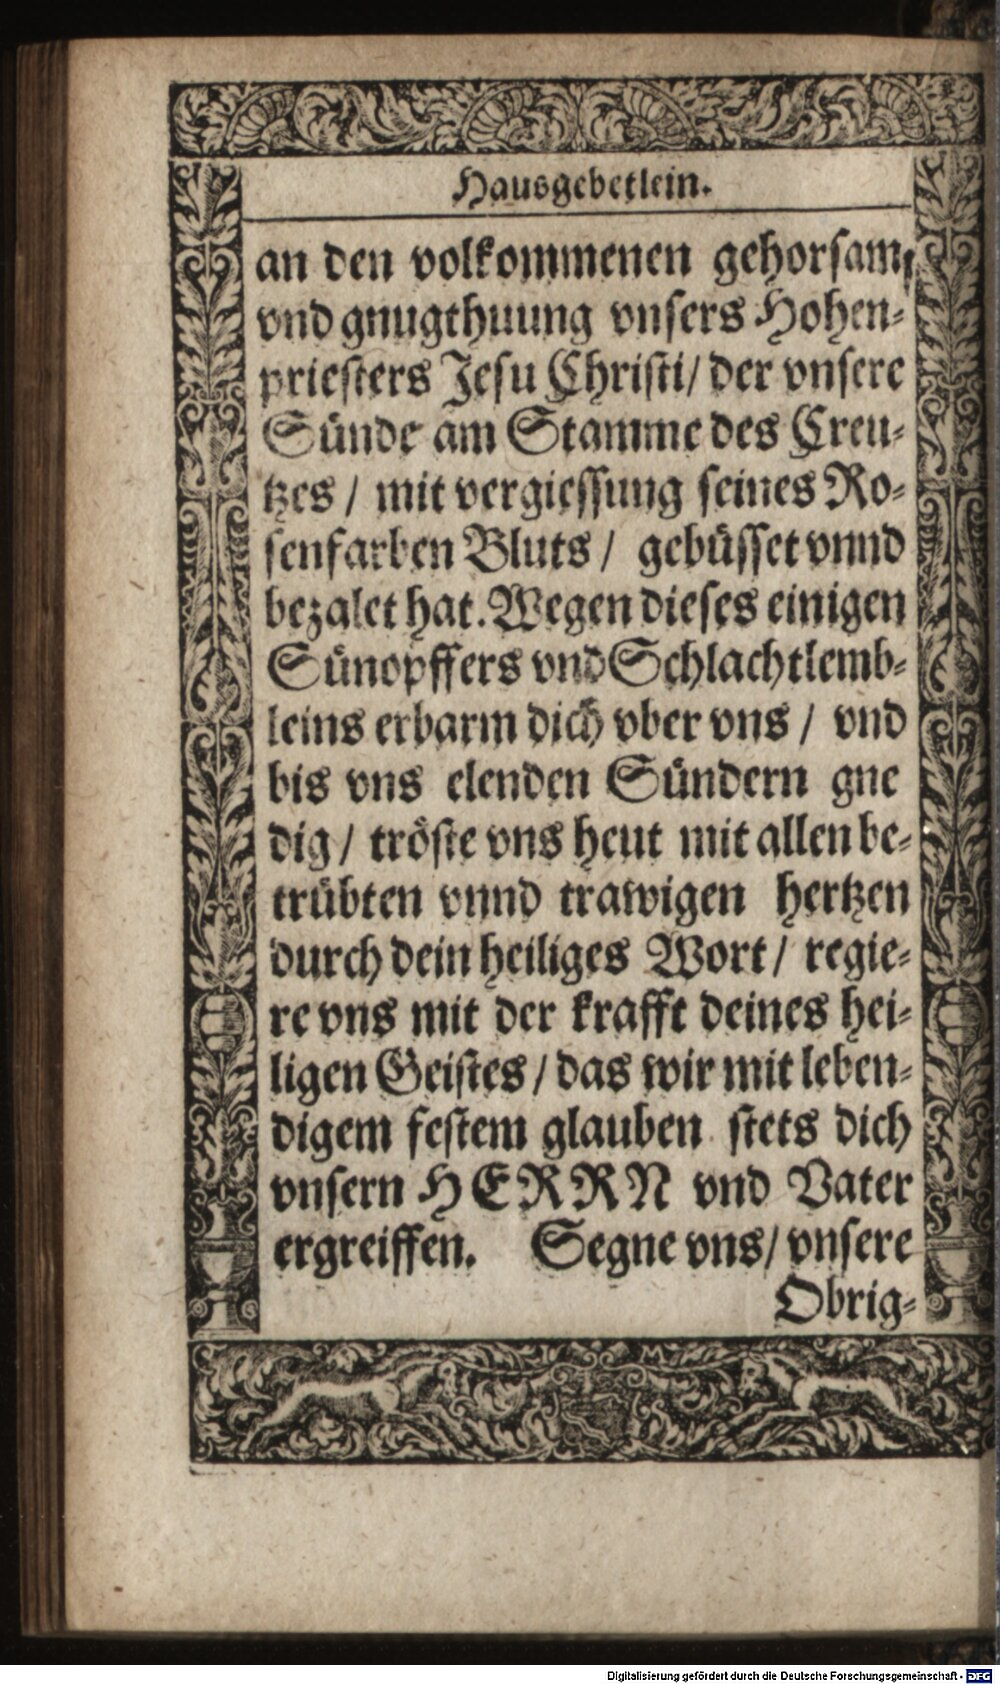 Hausgebetlein.
an den volkommenen gehorsam/
vnd gnugthuung vnsers Hohen-
priesters Jesu Christi/ der vnsere
Sünde am Stamme des Creu-
tzes / mit vergiessung seines Ro-
senfarben Bluts / gebüsset vnnd
bezalet hat. Wegen dieses einigen
Sünopffers vnd Schlachtlemb-
leins erbarm dich vber vns / vnd
bis vns elenden Sündern gne
dig / tröste vns heut mit allen be-
trübten vnnd trawigen hertzen
durch dein heiliges Wort / regie-
re vns mit der krafft deines hei-
ligen Geistes / das wir mit leben-
digem festem glauben stets dich
vnsern HERRN vnd Vater
ergreiffen. Segne vns/ vnsere
Obrig-
Digitalisierung gefördert durch die Deutsche Forschungsgemeinschaft - DFG